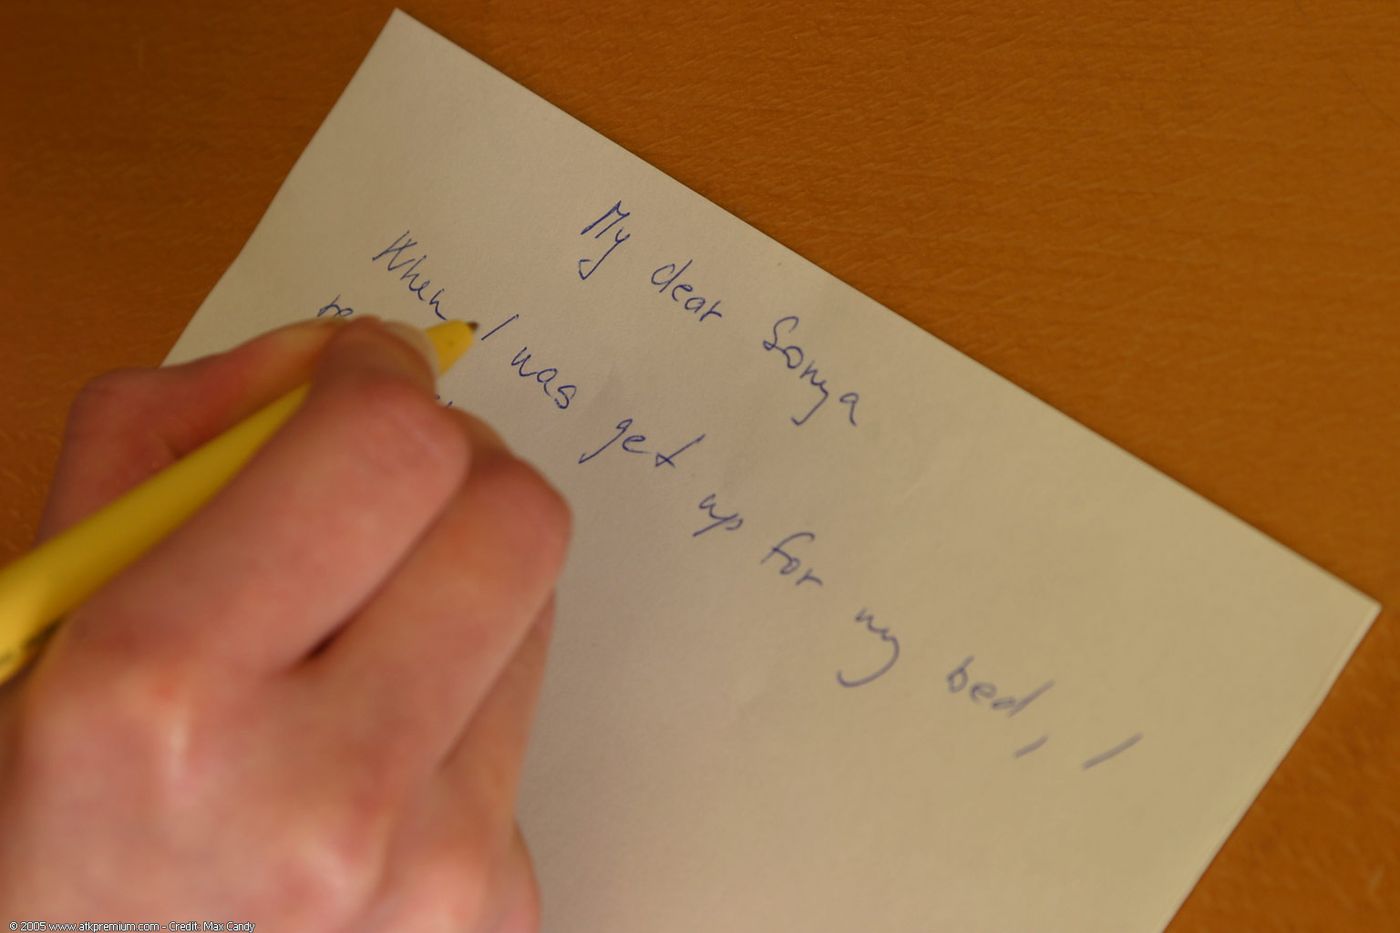 My dear Sonya
When I was get up for my bed, I
© 2005 www.atkpremium.com - Credit: Max Candy